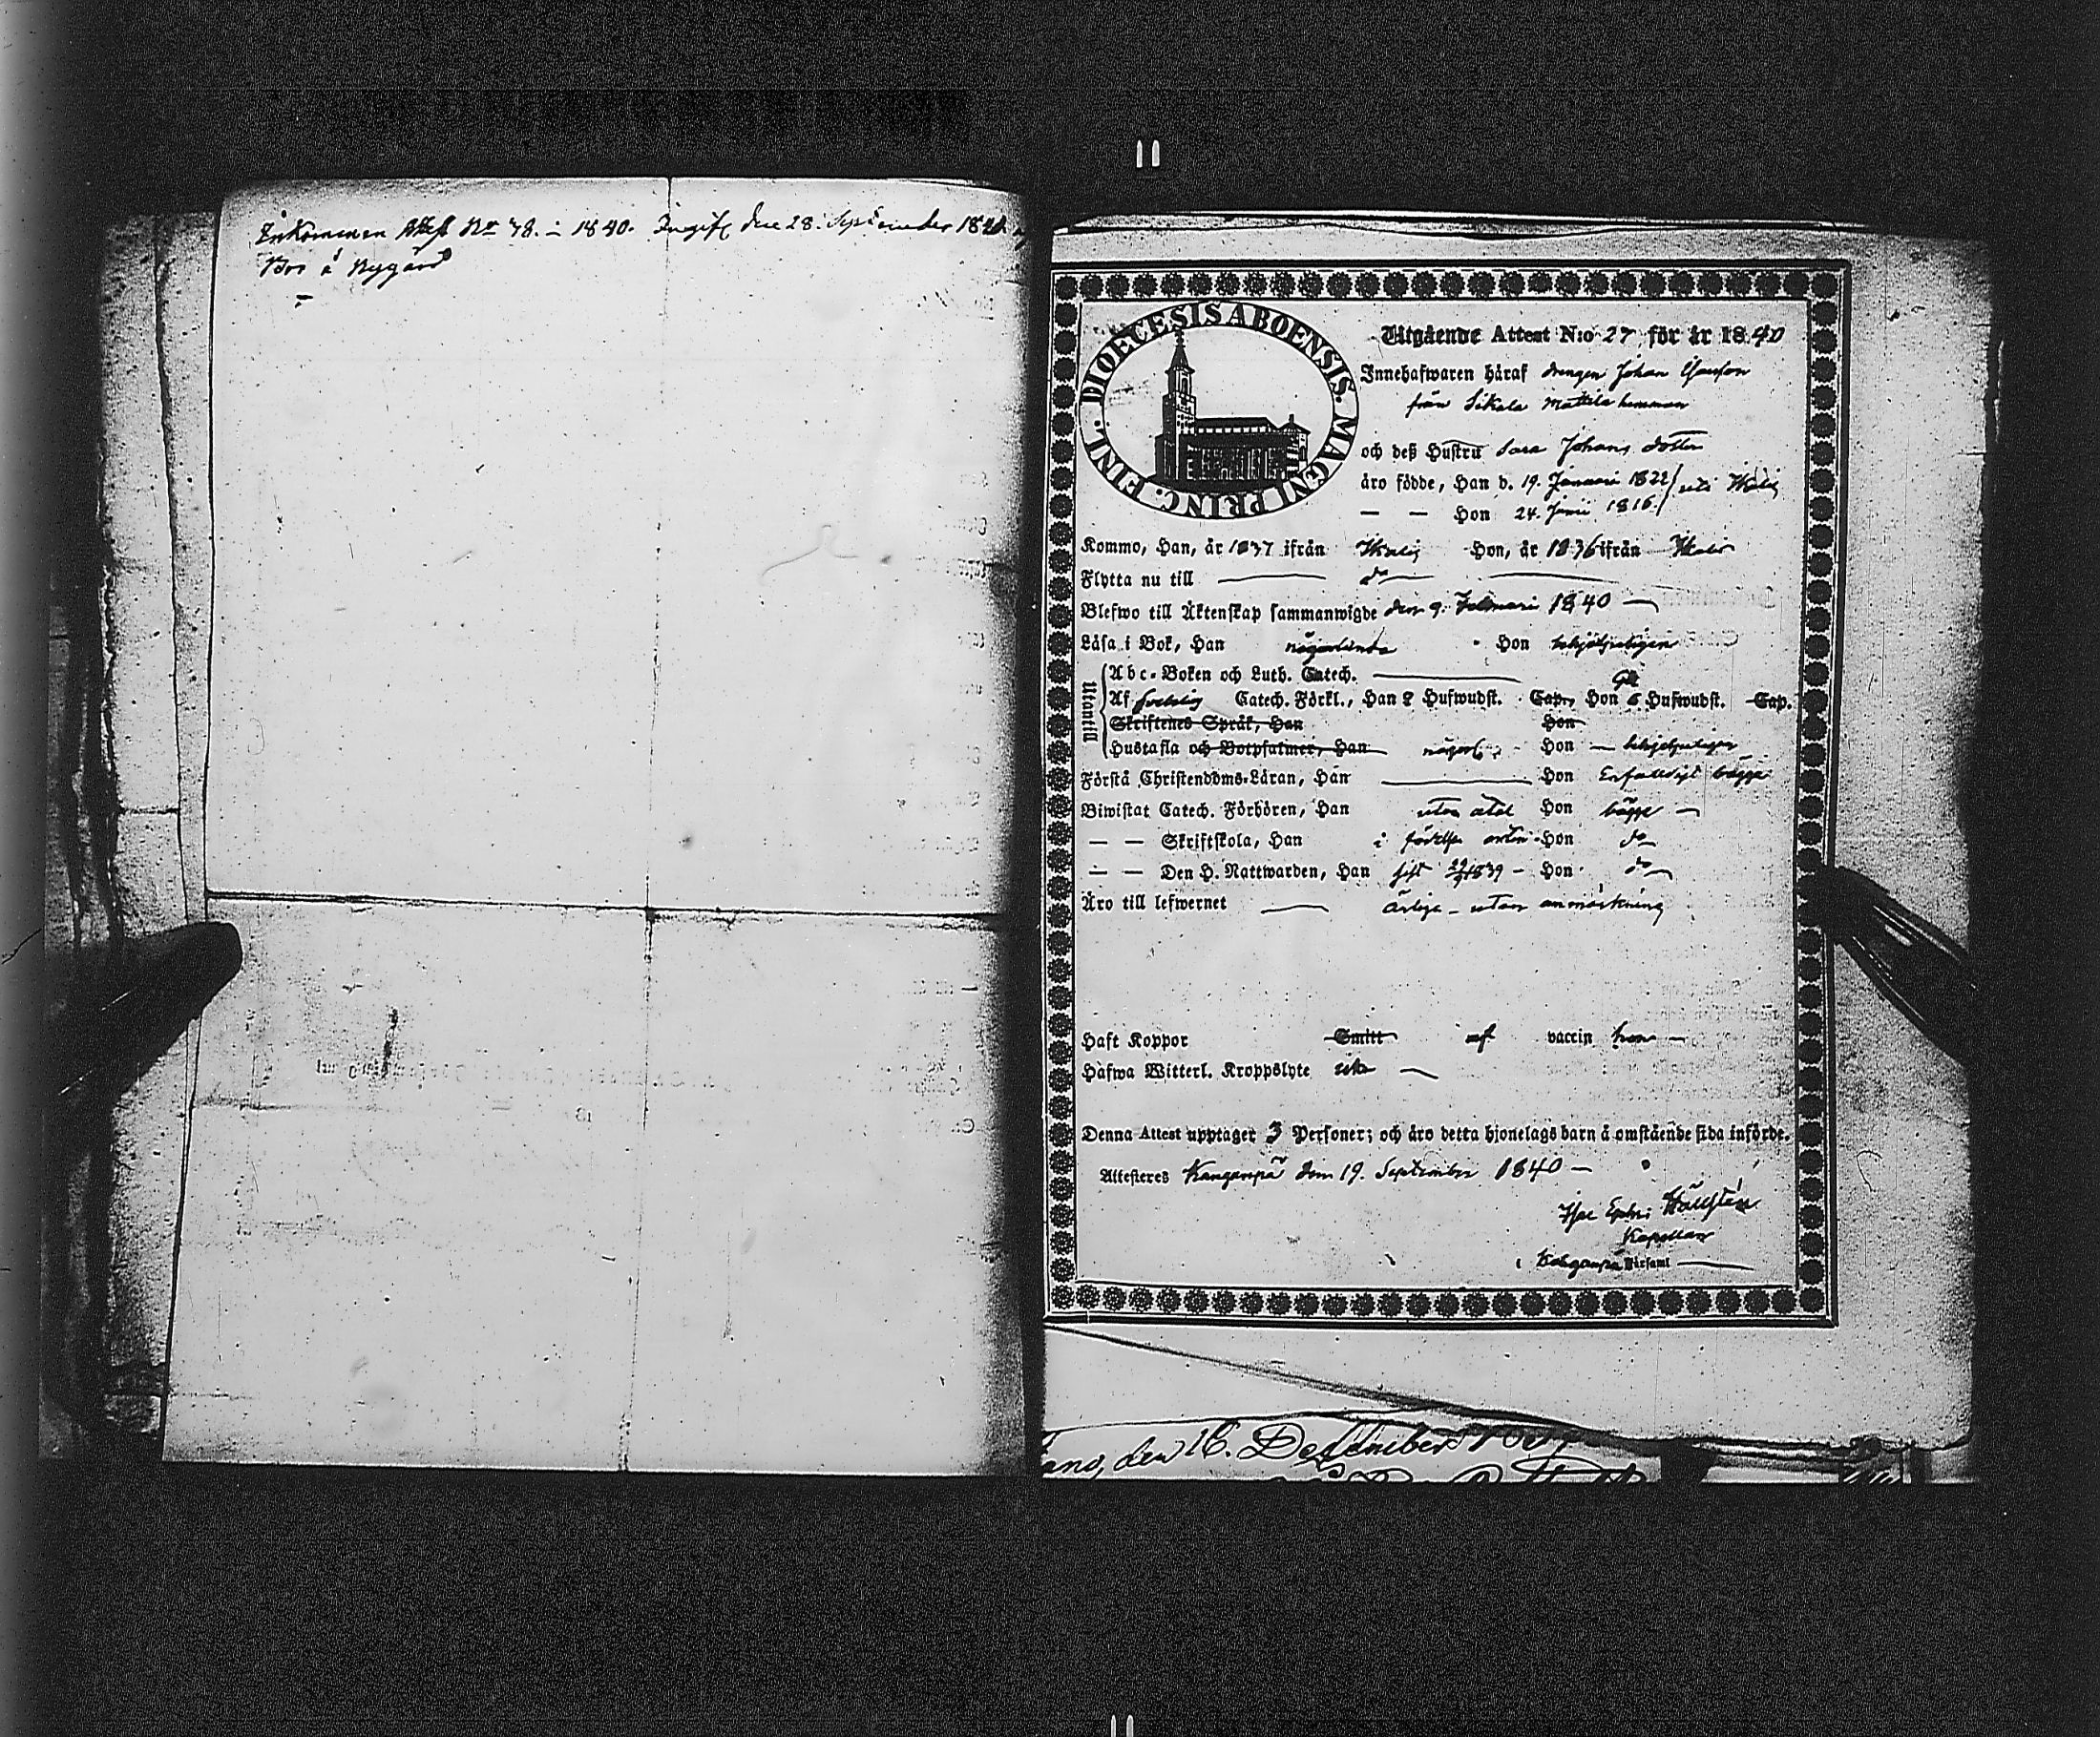 Inkommen Attest No 78. – 1840. Ingift den 28. September 1840.
Bor å Nygård
DIOECESIS ABOENSIS. MAGNI PRINC. FINL.
Utgående Attest N:o 27 för år 1840
Innehafwaren häraf drengen Johan
från Sikala Mattila hemman
och deß Hustru Sara Johans dotter
äro födde, Han d. 19. Januari 1822
— — Hon 24. Junii 1816.
Kommo, Han, år 1837 ifrån Hon, år 1836 ifrån
Flytta nu till — do —
Blefwo till Äktenskap sammanwigde den 9. Februari 1840 —
Läsa i Bok, Han någorlunda Hon behjelpeligen
Utantill
Abc-Boken och Luth. Catech. —
Af Catech. Förkl., Han Hufwudst. Cap., Hon 6 Hufwudst. Cap.
Skriftenes Språk, Han Hon
Hustafla och Botpsalmer, Han någorl. Hon — behjelpeligen
Förstå Christendoms-Läran, Han — Hon Enfaldigt bägge
Biwistat Catech. Förhören, Han utan Hon bägge —
— — Skriftskola, Han i födelse orten Hon do
— — Den H. Nattwarden, Han sist 1839 – Hon do
Äro till lefwernet — ärliga – utan anmärkning
Haft Koppor Smitt af vaccin han —
Hafwa Witterl. Kroppslyte utan —
Denna Attest upptager 3 Personer; och äro detta hjonelags barn å omstående sida införde.
Attesteres Kangasnpä den 19. September 1840 —
Hällsten
Kapellan
i
den 16. December